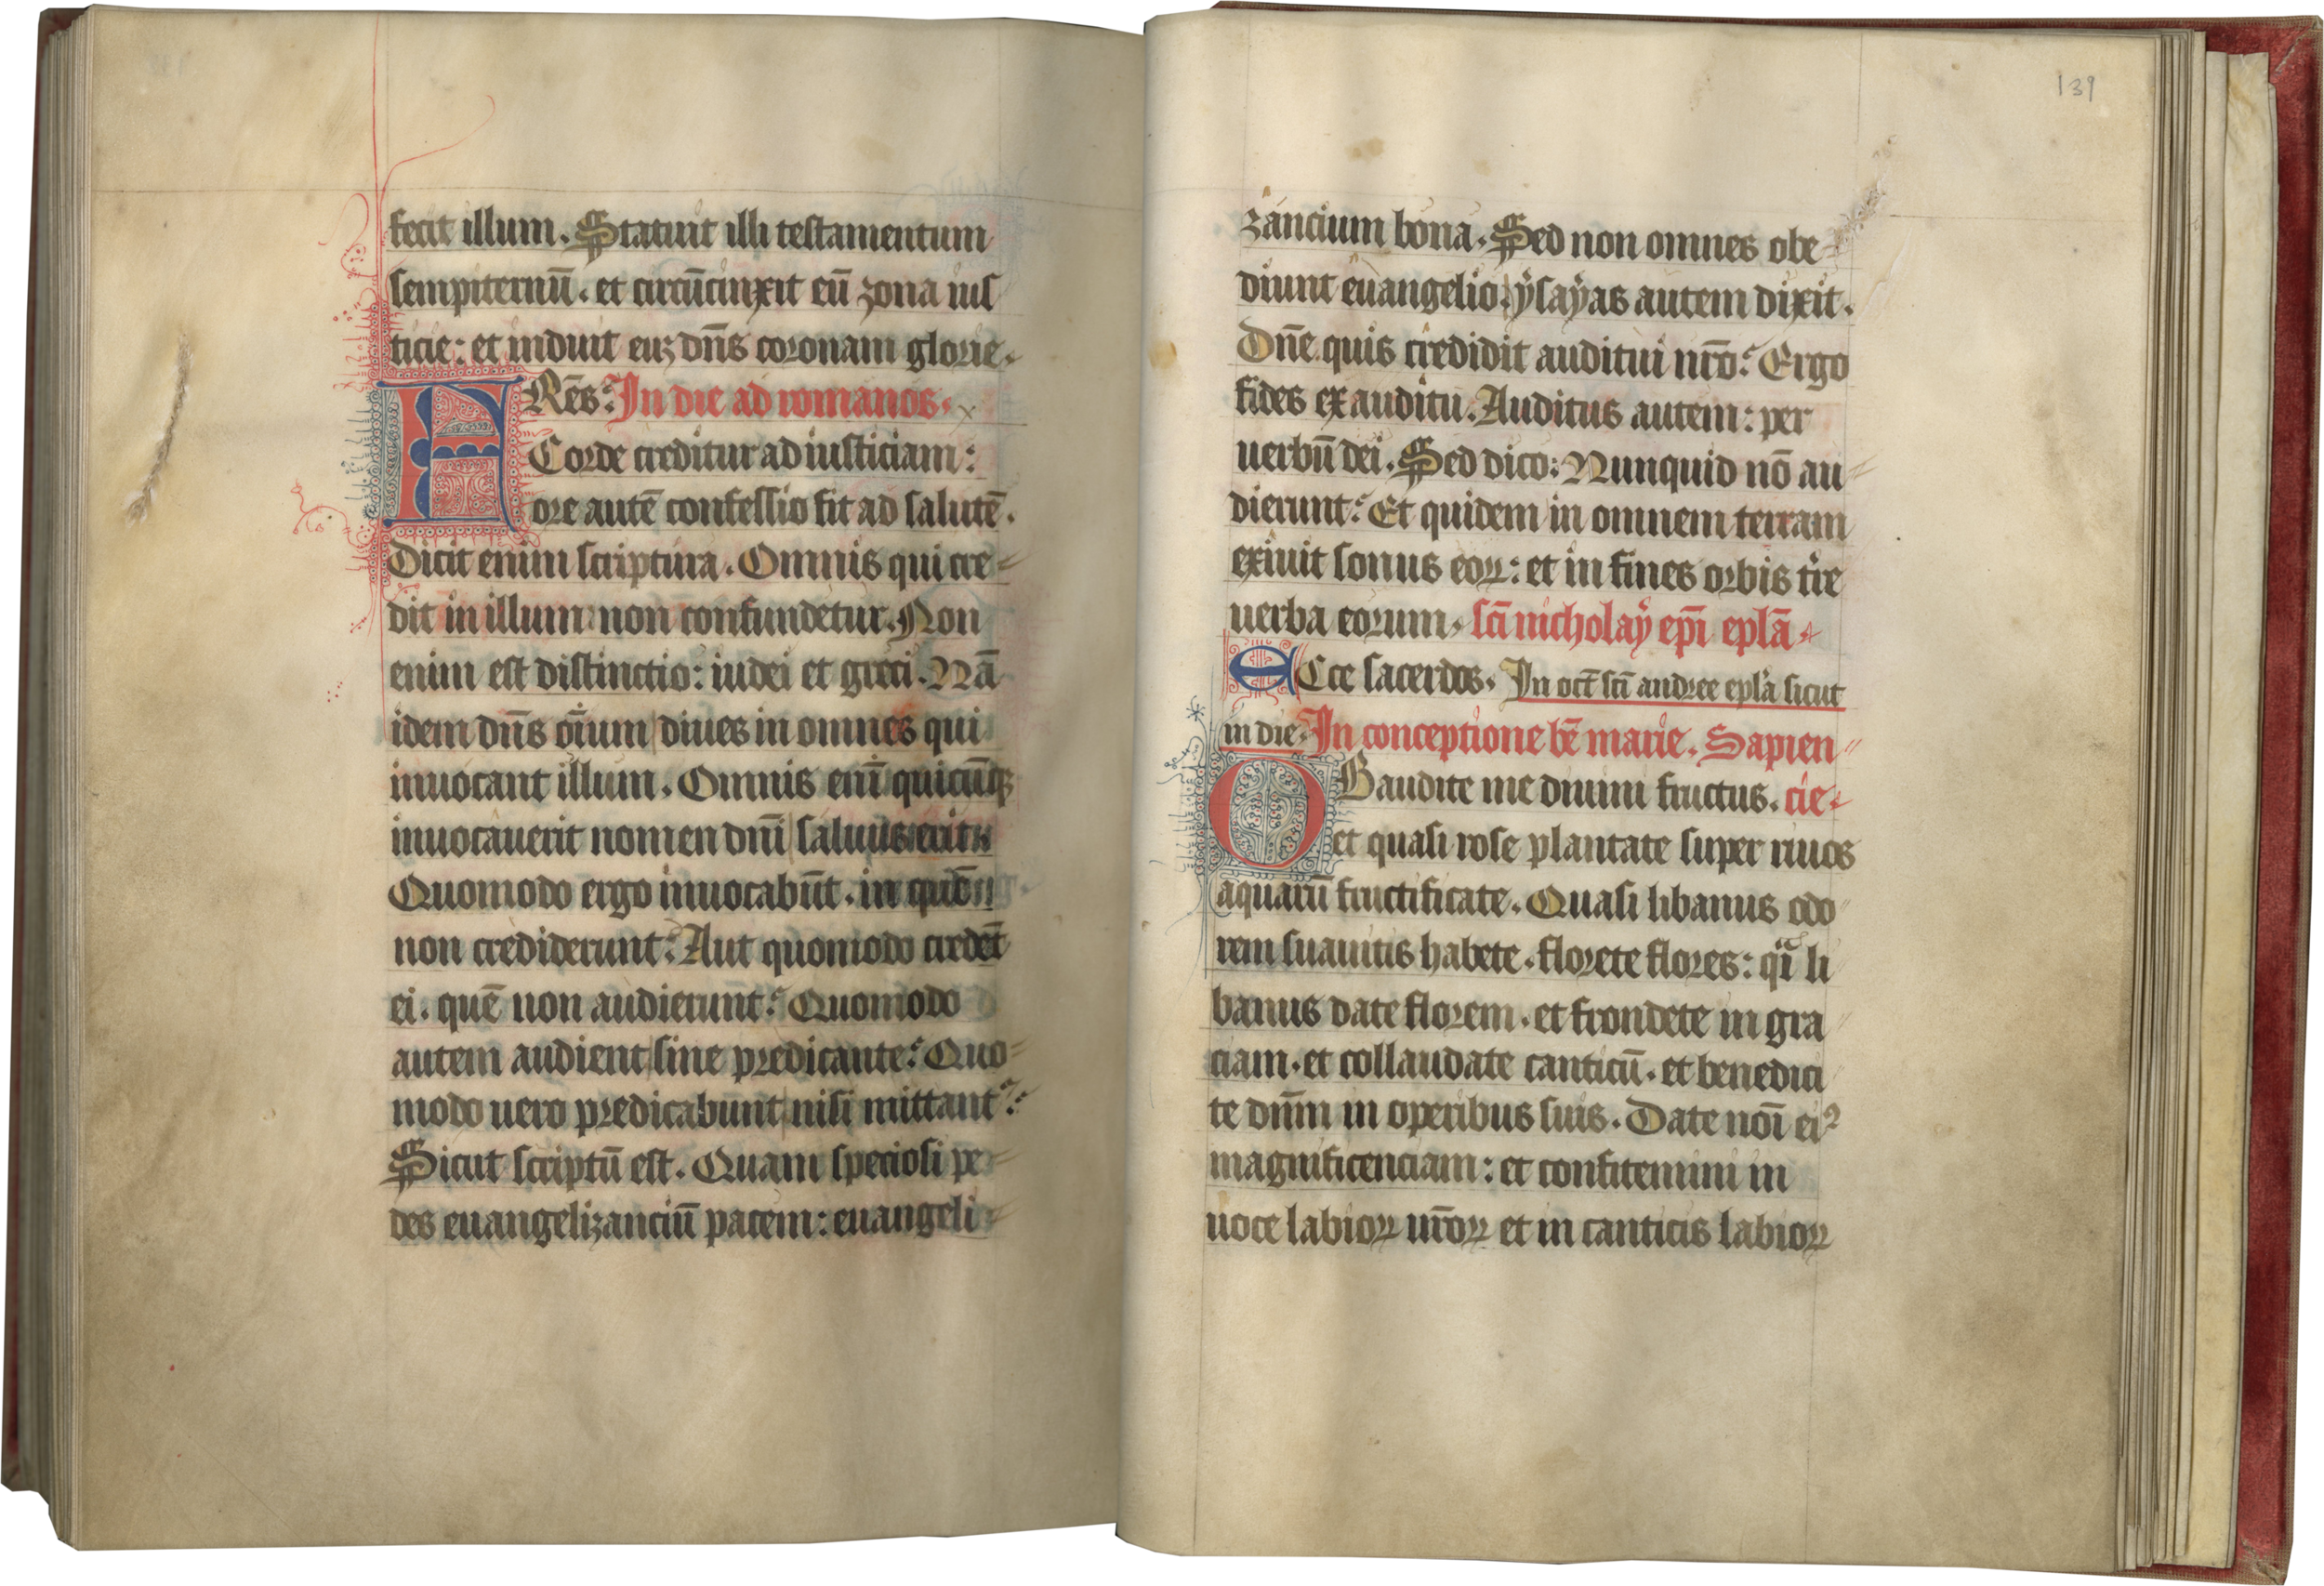 fecit illum. Statuit illi testamentum
sempiternū. et circūcinxit eū zona ius
ticie: et induit euʒ dn̄s coronam glorie.
FRēs: In die ad romanos.
Corde creditur ad iusticiam:
ore autē confessio fit ad salutē.
Dicit enim scriptura. Omnis qui cre=
dit in illum: non confundetur. Non
enim est distinctio: iudei et greci. Nā
idem dn̄s oīum diues in omnes qui
inuocant illum. Omnis enī quicūqʒ
inuocauerit nomen dn̄i saluus erit.
Quomodo ergo inuocabūt. in quē
non crediderunt? Aut quomodo credēt
ei. quē non audierunt? Quomodo
autem audient sine predicante? Quo=
modo uero predicabunt nisi mittant᷑?
Sicut scriptū est. Quam speciosi pe=
des euangelizanciū pacem: euangeli=
139
zancium bona. Sed non omnes obe=
diunt euangelio. ẏsaẏas autem dixit.
Dn̄e quis credidit auditui nr̄o? Ergo
fides ex auditu. Auditus autem: per
uerbū dei. Sed dico: Nunquid nō au=
dierunt? Et quidem in omnem terram
exiuit sonus eoꝝ: et in fines orbis tr̄e
uerba eorum. sc̄i nicholaẏ ep̄i epl̄a.
ECce sacerdos. In oct̄ sc̄i andree epl̄a sicut
in die. In conceptione bē marie. Sapien=
OBaudite me diuini fructus. cie.
et quasi rose plantate super riuos
aquarū fructificate. Quasi libanus odo=
rem suauitis habete. florete flores: qͣi li
banus date florem. et frondete in gra
ciam. et collaudate canticū. et benedici
te dn̄m in operibus suis. Date noī eiꝰ
magnificenciam: et confitemini in
uoce labioꝝ ur̄oꝝ et in canticis labioꝝ